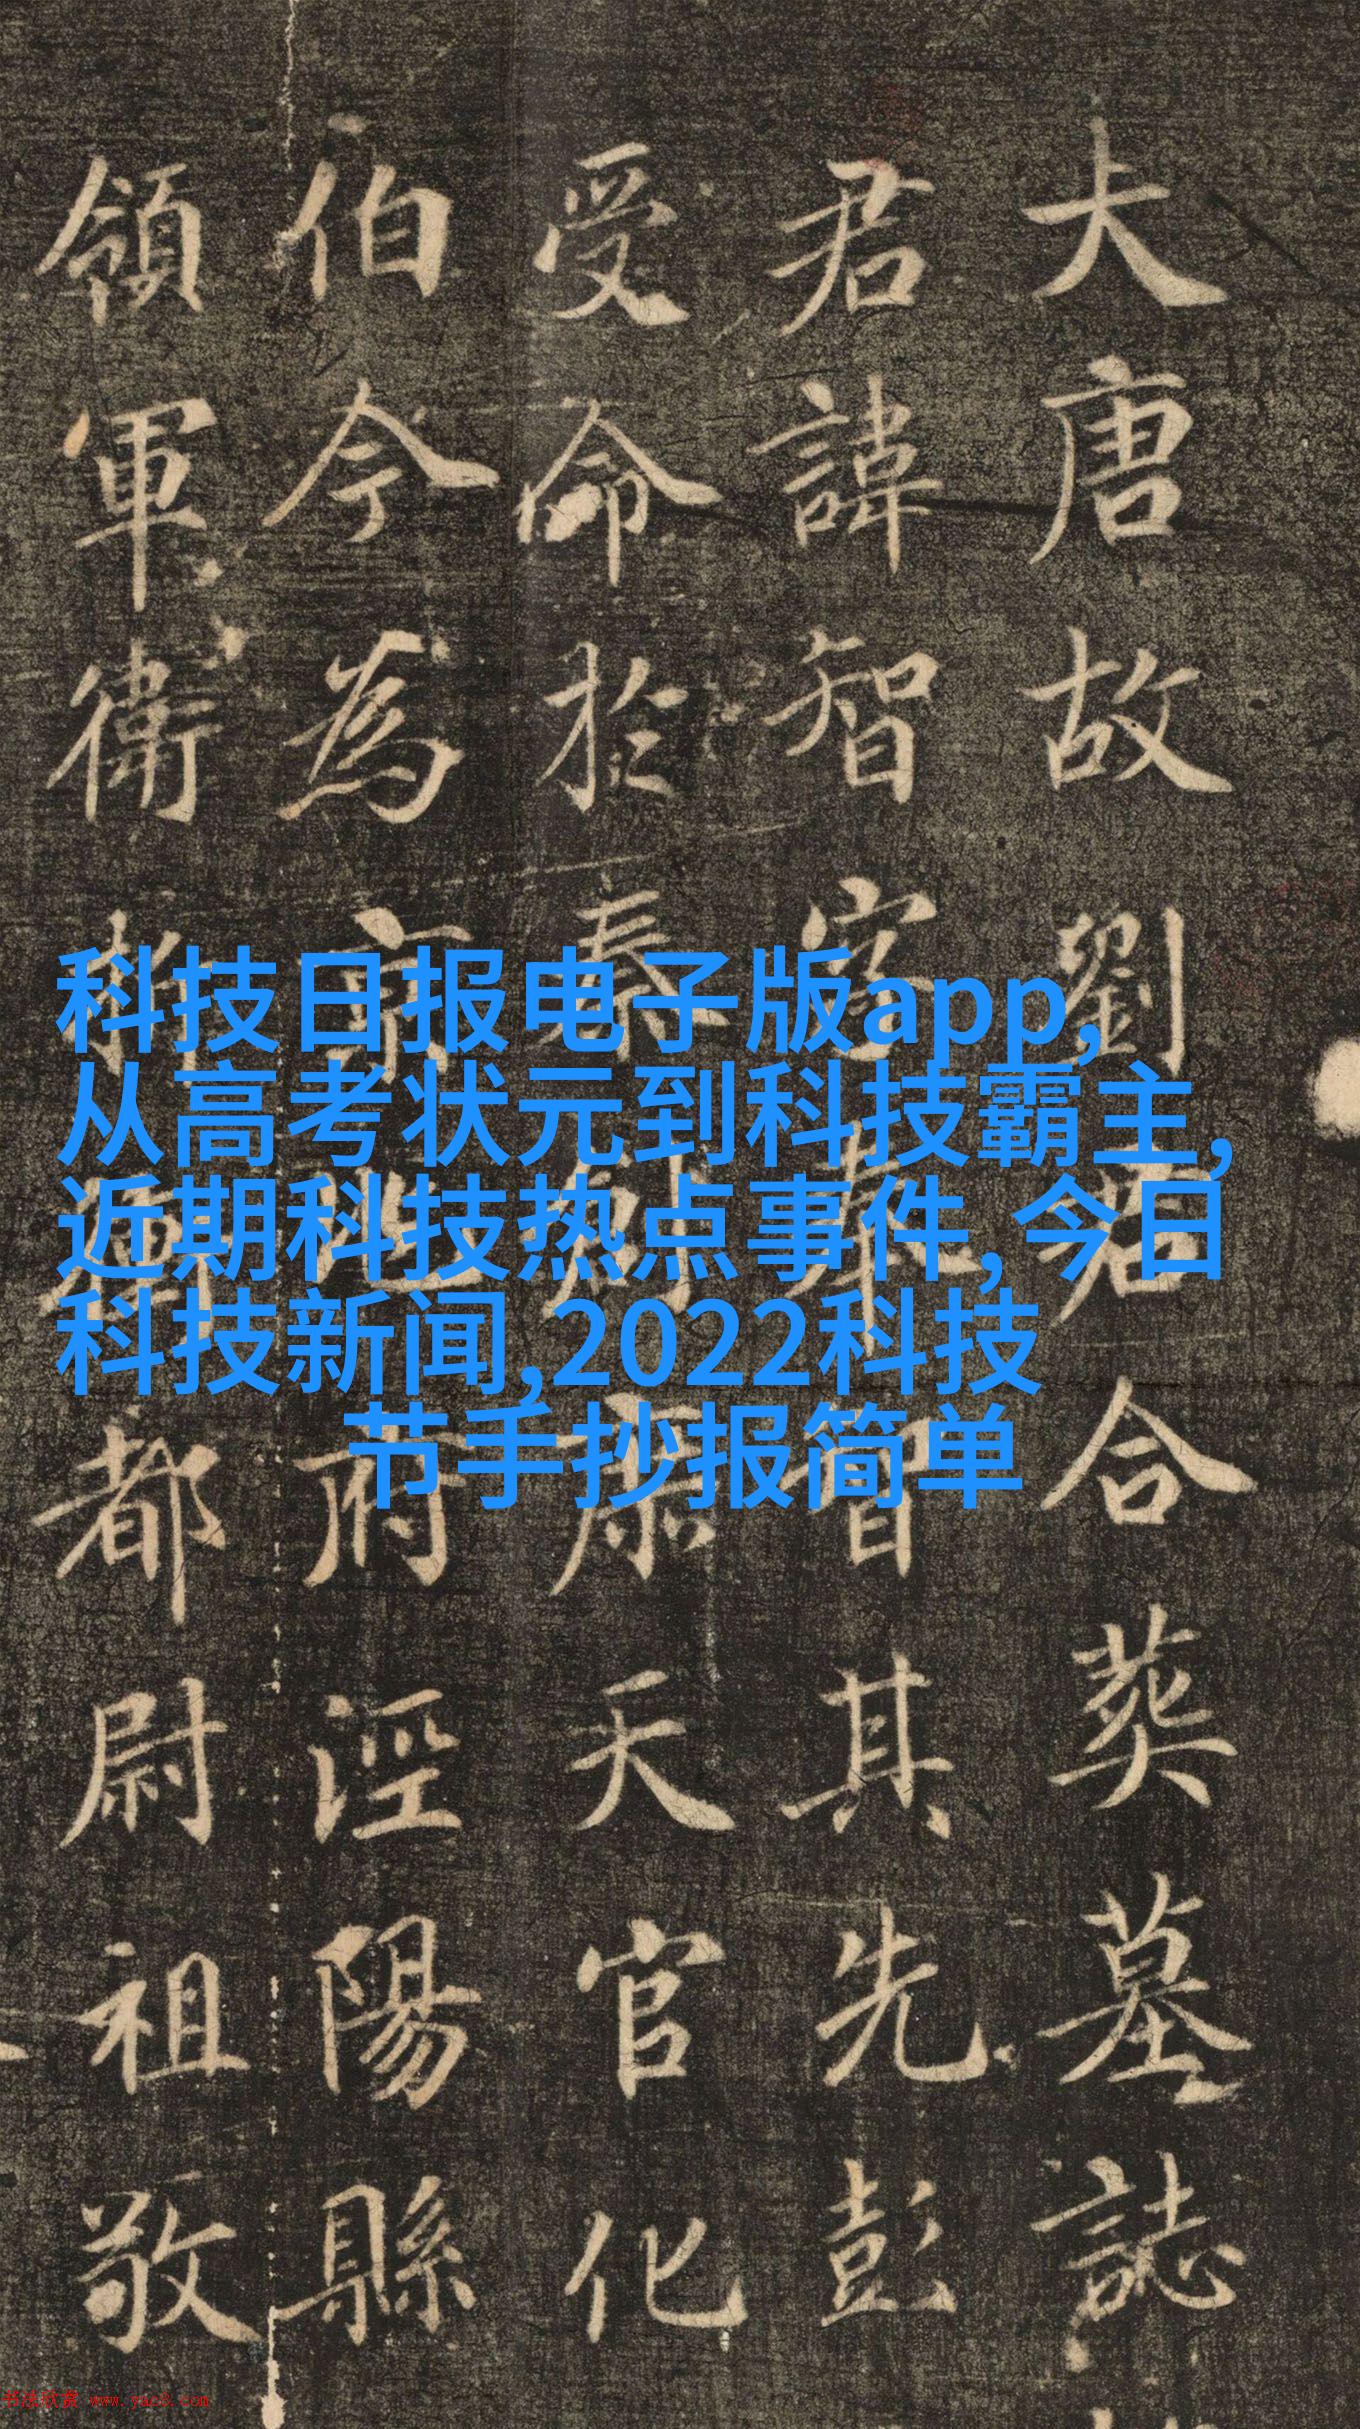 大唐故劉君合葬墓誌
君諱智字奉智其先彭
受命於秦天官化
伯今為京兆府涇陽縣
領軍衛都尉祖敬
科技日报电子版app,
从高考状元到科技霸主,
近期科技热点事件,今日
科技新闻,2022科技
节手抄报简单
书法欣赏 www.yac8.com